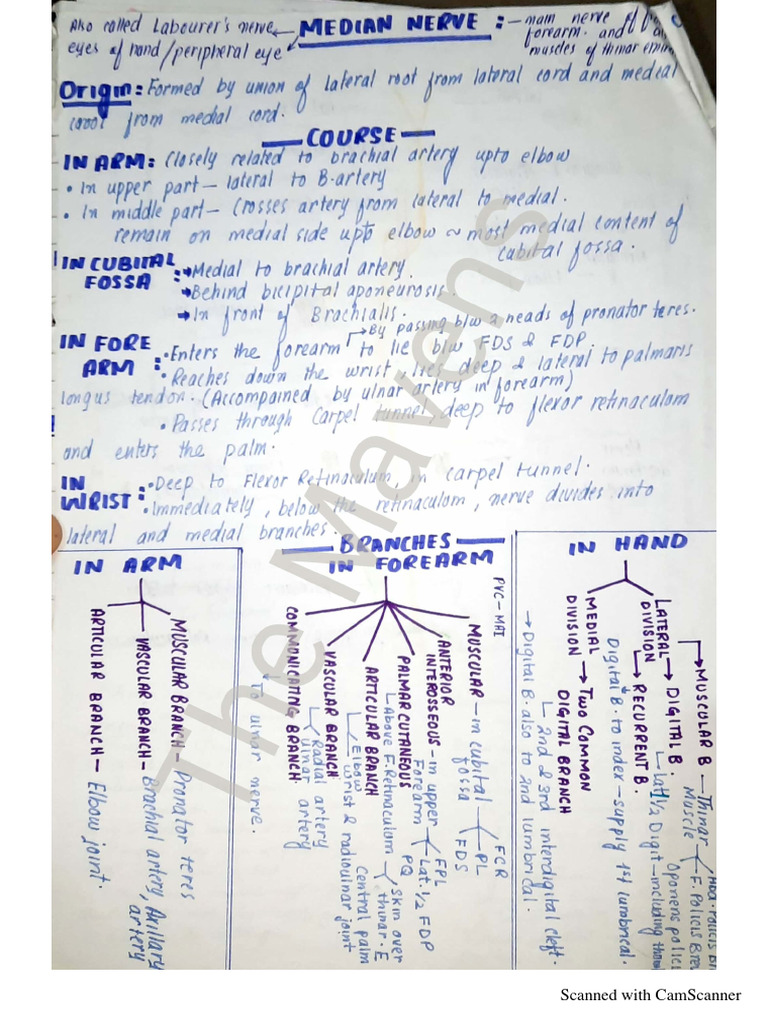 Also called Labourer's nerve
eyes of hand/peripheral eye
MEDIAN NERVE :
- main nerve of
forearm. and
muscles of thinar emin
Origin: Formed by union of lateral root from lateral cord and medial
root from medial cord.
COURSE
IN ARM: Closely related to brachial artery upto elbow
• In upper part - lateral to B.artery
• In middle part - Crosses artery from lateral to medial.
remain on medial side upto elbow ~ most medial content of
cubital fossa.
IN CUBITAL FOSSA :
→ Medial to brachial artery.
→ Behind bicipital aponeurosis.
→ In front of Brachialis.
→ By passing b/w 2 heads of pronator teres.
IN FORE ARM :
• Enters the forearm to lie b/w FDS & FDP.
• Reaches down the wrist, lies deep & lateral to palmaris
longus tendon. (Accompained by ulnar artery in forearm)
• Passes through Carpel tunnel, deep to flexor retinaculam
and enters the palm.
IN WRIST :
• Deep to Flexor Retinaculum, in carpel tunnel.
• Immediately, below the retinaculam, nerve divides into
lateral and medial branches.
BRANCHES
IN ARM
MUSCULAR BRANCH - Pronator teres
VASCULAR BRANCH - Brachial artery, Axillary
artery
ARTICULAR BRANCH - Elbow joint.
IN FOREARM
PVC-MAI
MUSCULAR - in cubital fossa
FCR
PL
FDS
ANTERIOR INTEROSSEOUS - in upper Forearm
FPL
Lat. 1/2 FDP
PQ
PALMAR CUTANEOUS
Above F. Retinaculam
Skin over thinar. E
Central palm
ARTICULAR BRANCH
Elbow
Wrist & radioulnar joint
VASCULAR BRANCH
Radial artery
ulnar artery
COMMUNICATING BRANCH
To ulnar nerve.
IN HAND
LATERAL DIVISION → DIGITAL B.
→ RECURRENT B.
→ MUSCULAR B - Thinar Muscle
F. Policis Brev
Oponens polici
Lat 1 1/2 Digit - including
Digital B. to index - supply 1st lumbrical.
MEDIAL DIVISION → TWO COMMON DIGITAL BRANCH
2nd & 3rd interdigital cleft.
→ Digital B. also to 2nd lumbrical.
The Mavens
Scanned with CamScanner